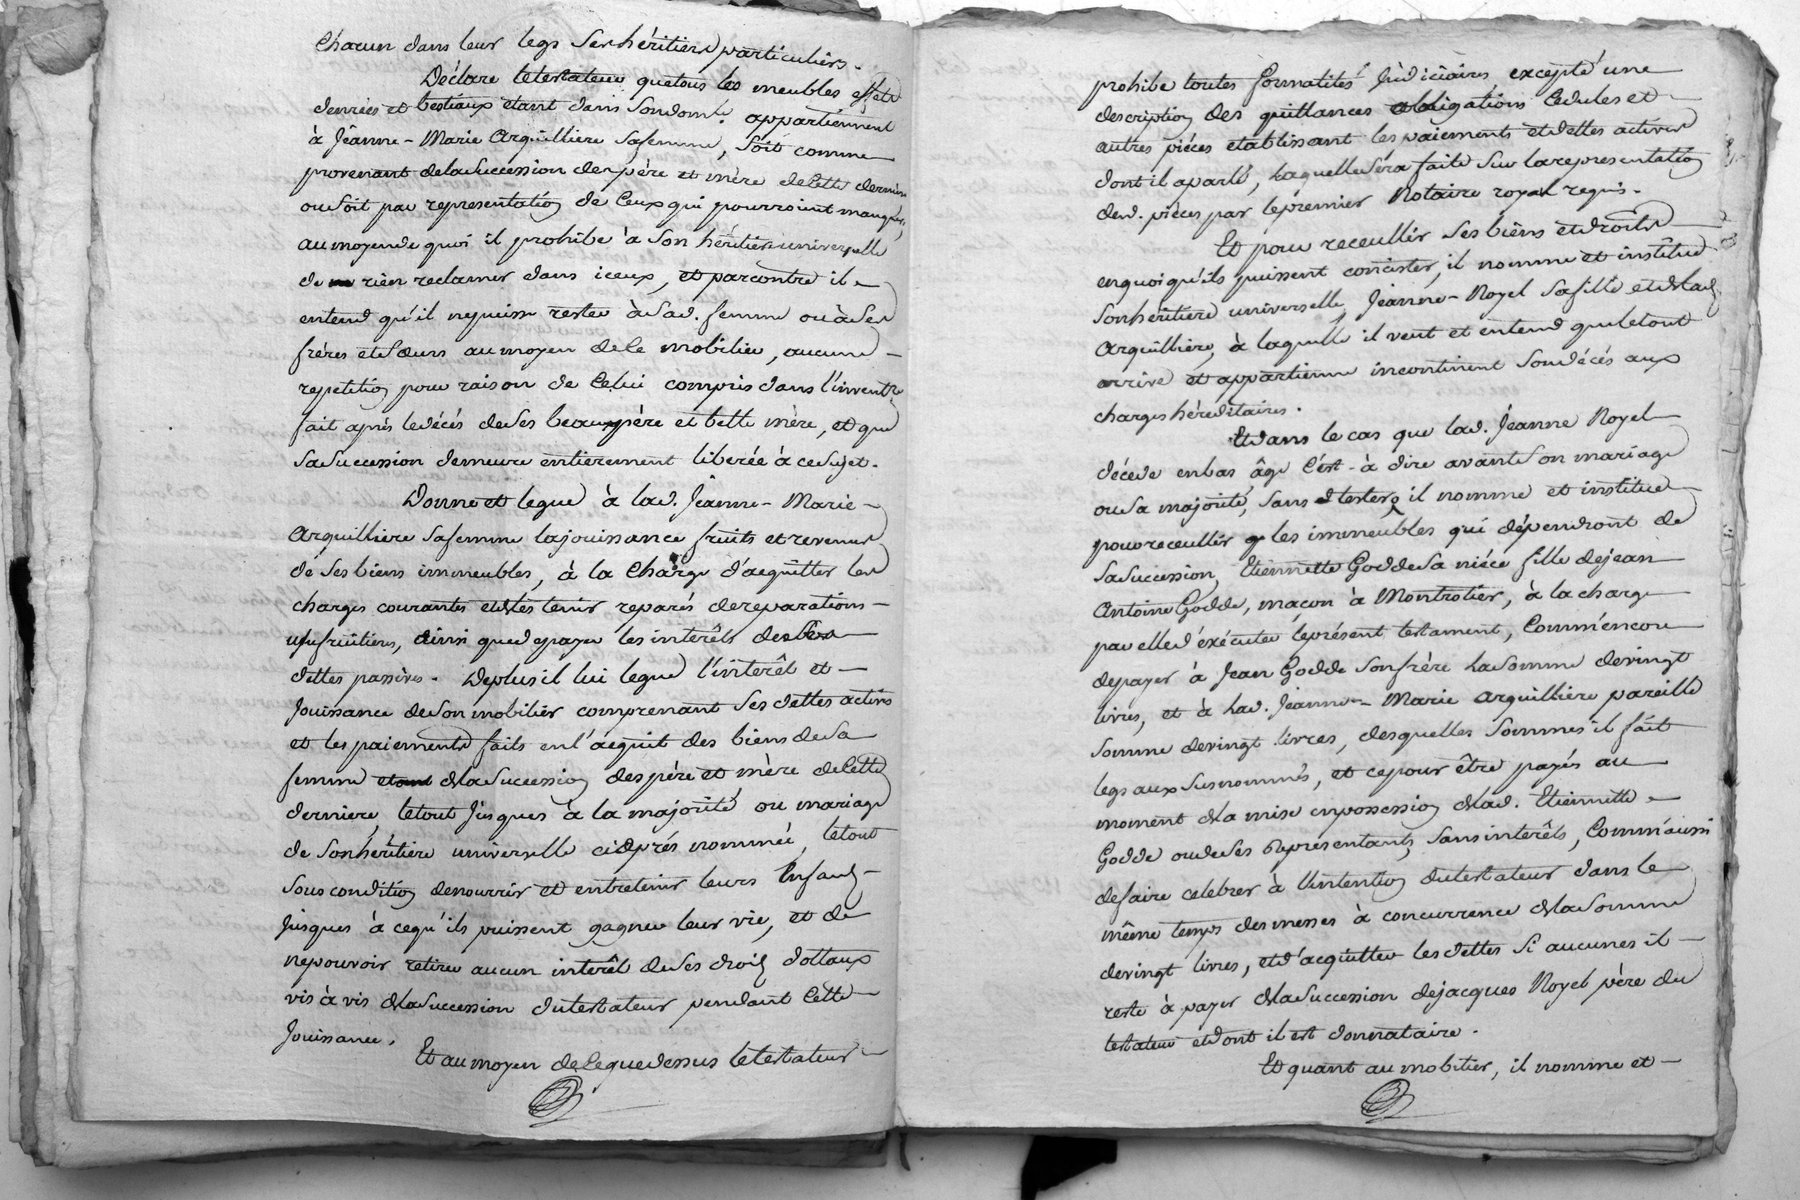 Chacun dans leur legs Ses héritiers particuliers.
Déclare le testateur que tous les meubles effets
denrées et bestiaux etant dans Son dom.le appartiennent
à Jeanne-Marie Arquilliere Sa femme, Soit comme
provenant de la Succession des père et mère de Cette derniere
ou Soit par representation de Ceux qui pourroient manquer,
au moyen de quoi il prohibe à Son héritiere universelle
de rien reclamer dans iceux, et par contre il
entend qu'il ne puisse rester à Sad. femme ou à Ses
frères et Sœurs au moyen de Ce mobilier, aucune
repetition pour raison de Celui compris dans l'invent.re
fait après le décés de Ses beau père et belle mère, et que
Sa Succession demeure entierement liberée à ce Sujet.
Donne et legue à lad. Jeanne-Marie
Arquilliere Sa femme la jouissance fruits et revenus
de Ses biens immeubles, à la Charge d'acquitter les
charges courantes et de les tenir reparés de reparations
usufruitieres, ainsi que de payer les interêts de Ses
dettes passives. De plus il lui legue l'interêt et
Jouissance de Son mobilier comprenant Ses dettes actives
et les paiements faits en l'acquit des biens de Sa
femme de la Succession des père et mère de Cette
derniere, le tout Jusques à la majorité ou mariage
de Son héritiere universelle ci après nommée, le tout
Sous condition de nourrir et entretenir leurs Enfants
Jusques à ce qu'ils puissent gagner leur vie, et de
ne pouvoir retirer aucun interêt de Ses droits dottaux
vis à vis de la Succession du testateur pendant Cette
Jouissance.
Et au moyen de Ce que dessus le testateur
prohibe toutes formalités Judiciaires excepté une
description des quittances obligations Cedules et
autres piéces etablissant les paiements et dettes actives
dont il a parlé, laquelle Sera faite Sur la representation
desd. piéces par le premier Notaire royal requis.
Et pour receullir Ses biens et droits
en quoi qu'ils puissent concister, il nomme et institue
Son heritiere universelle, Jeanne-Royel Sa fille et de lad.
Arquilliere, à laquelle il veut et entend que le tout
arrive et appartienne incontinent Son décés aux
charges héréditaires.
Et dans le cas que lad. Jeanne Royel
décéde en bas âge C'est-à dire avant Son mariage
ou Sa majorité, Sans tester, il nomme et institue
pour receullir les immeubles qui dépendront de
Sa Succession, Etiennette Godde Sa niéce fille de jean
Antoine Godde, maçon à Montrotier, à la charge
par elle d'exécuter le présent testament, Comm'encore
de payer à Jean Godde Son frère la Somme de vingt
livres, et à lad. Jeanne-Marie Arquilliere pareille
Somme de vingt livres, desquelles Sommes il fait
legs aux Susnommés, et ce pour être payés au
moment de la mise en possession de lad. Etiennette
Godde ou de Ses representants, Sans interêts, Comm'aussi
de faire celebrer à l'intention du testateur dans le
même temps des messes à concurrence de la Somme
de vingt livres, et d'acquitter les dettes Si aucunes il
reste à payer de la Succession de jacques Royel père du
testateur et dont il est donnataire.
Et quant au mobilier, il nomme et